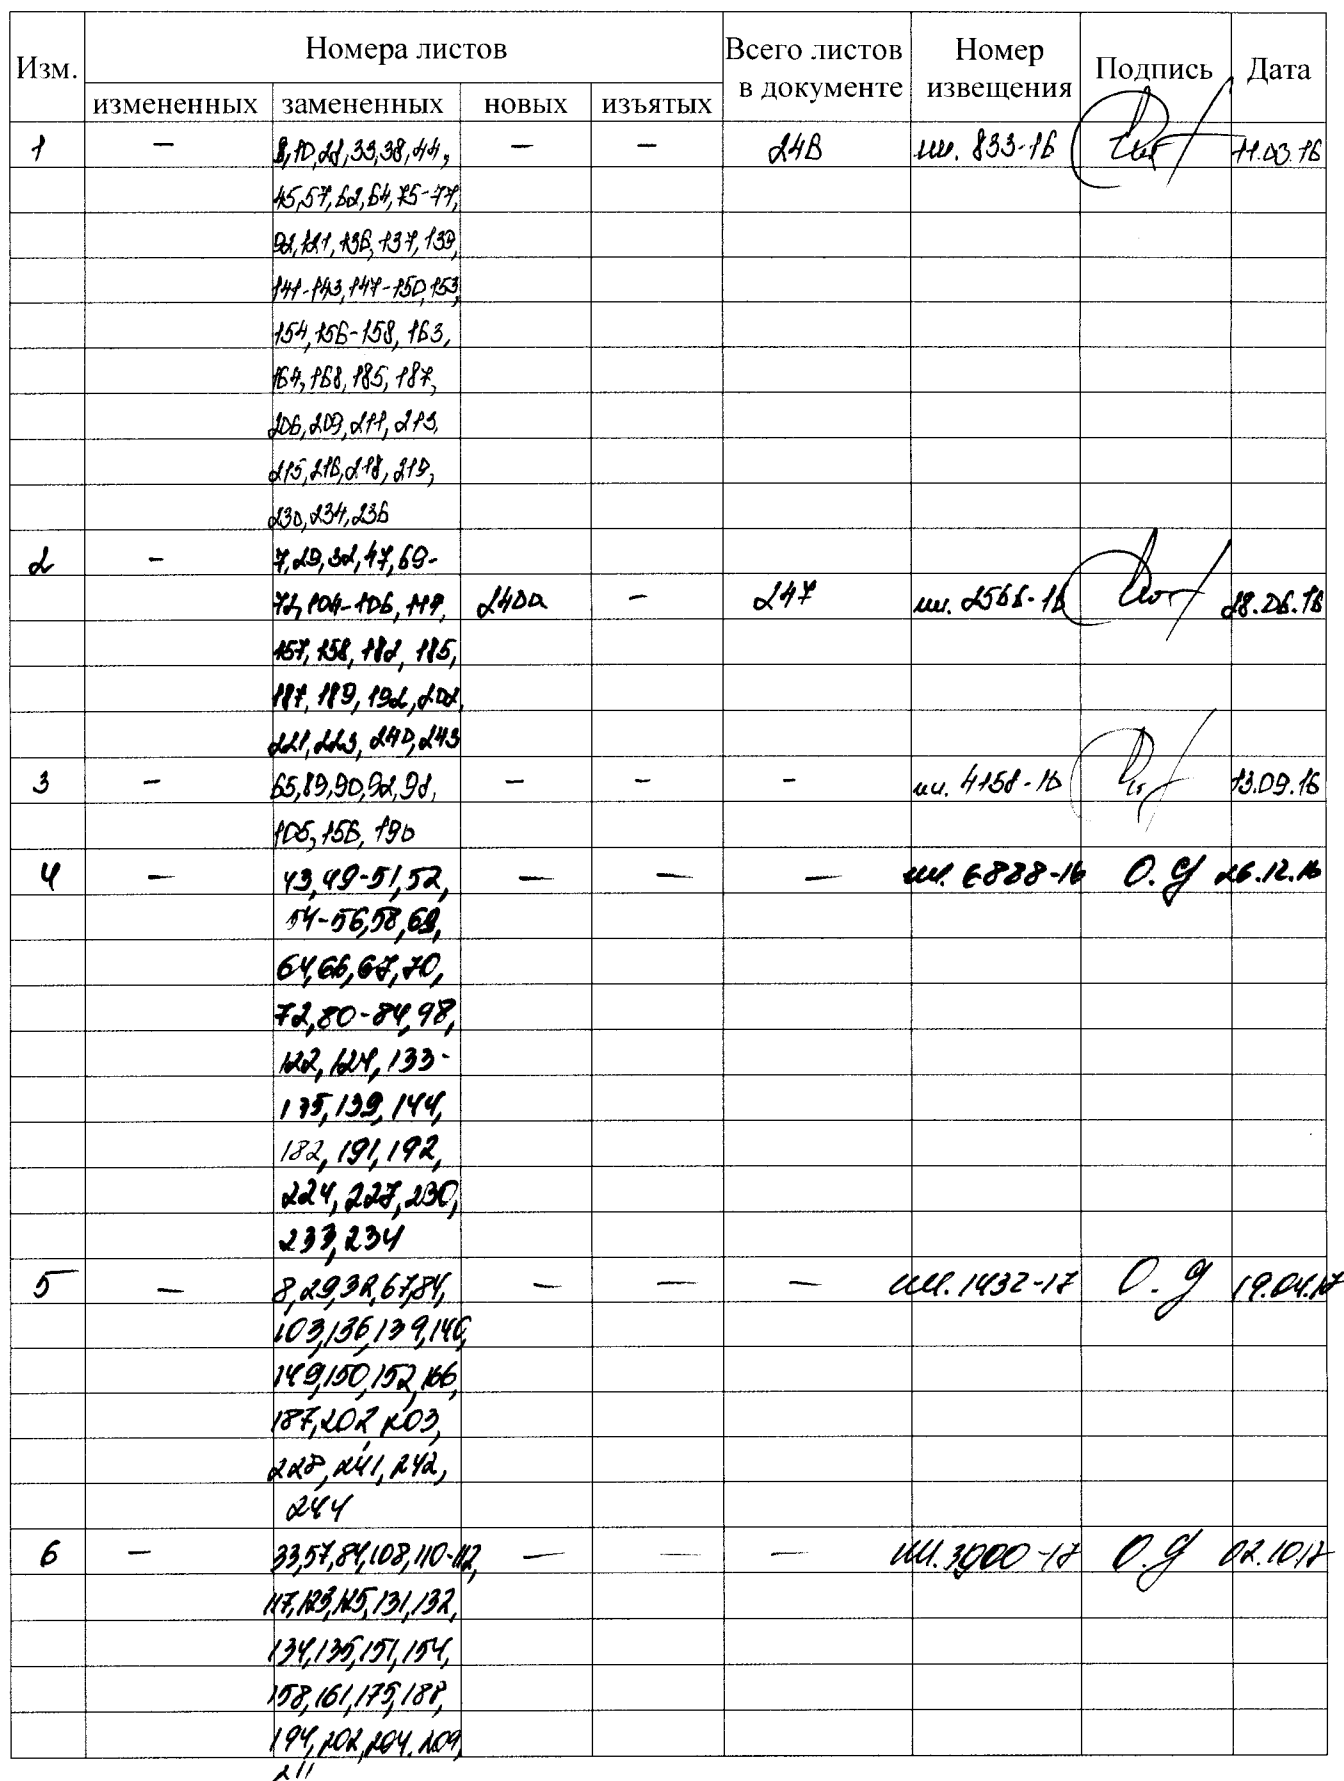 Изм. Номера листов Всего листов в документе Номер извещения Подпись Дата
измененных замененных новых изъятых
1 — 8,10,21,33,38,44, — — 246 ии. 833-16 11.03.16
45,57,62,64,75-77,
92,121,136,137,139,
141-143,147-150,153,
154,156-158,163,
164,168,185,187,
206,209,211,213,
215,216,218,219,
230,234,236
2 — 7,29,32,47,69-
72,104-106,119, 240а — 247 ии. 2566-16 28.06.16
157,158,182,185,
187,189,192,202,
221,223,240,243
3 — 65,89,90,92,98, — — — ии. 4158-16 13.09.16
105,156,190
4 — 43,49-51,52, — — — ии. 6888-16 О.Д 26.12.16
54-56,58,62,
64,66,67,70,
72,80-84,98,
122,124,133-
135,139,144,
182,191,192,
224,227,230,
233,234
5 — 8,29,32,67,84, — — — ии. 1432-17 О.Д 19.04.17
103,136,139,146,
149,150,152,166,
187,202,203,
228,241,242,
244
6 — 33,57,84,108,110-112, — — — ии. 3900-17 О.Д 02.10.17
117,123,125,131,132,
134,135,151,154,
158,161,175,188,
194,202,204,209,
211